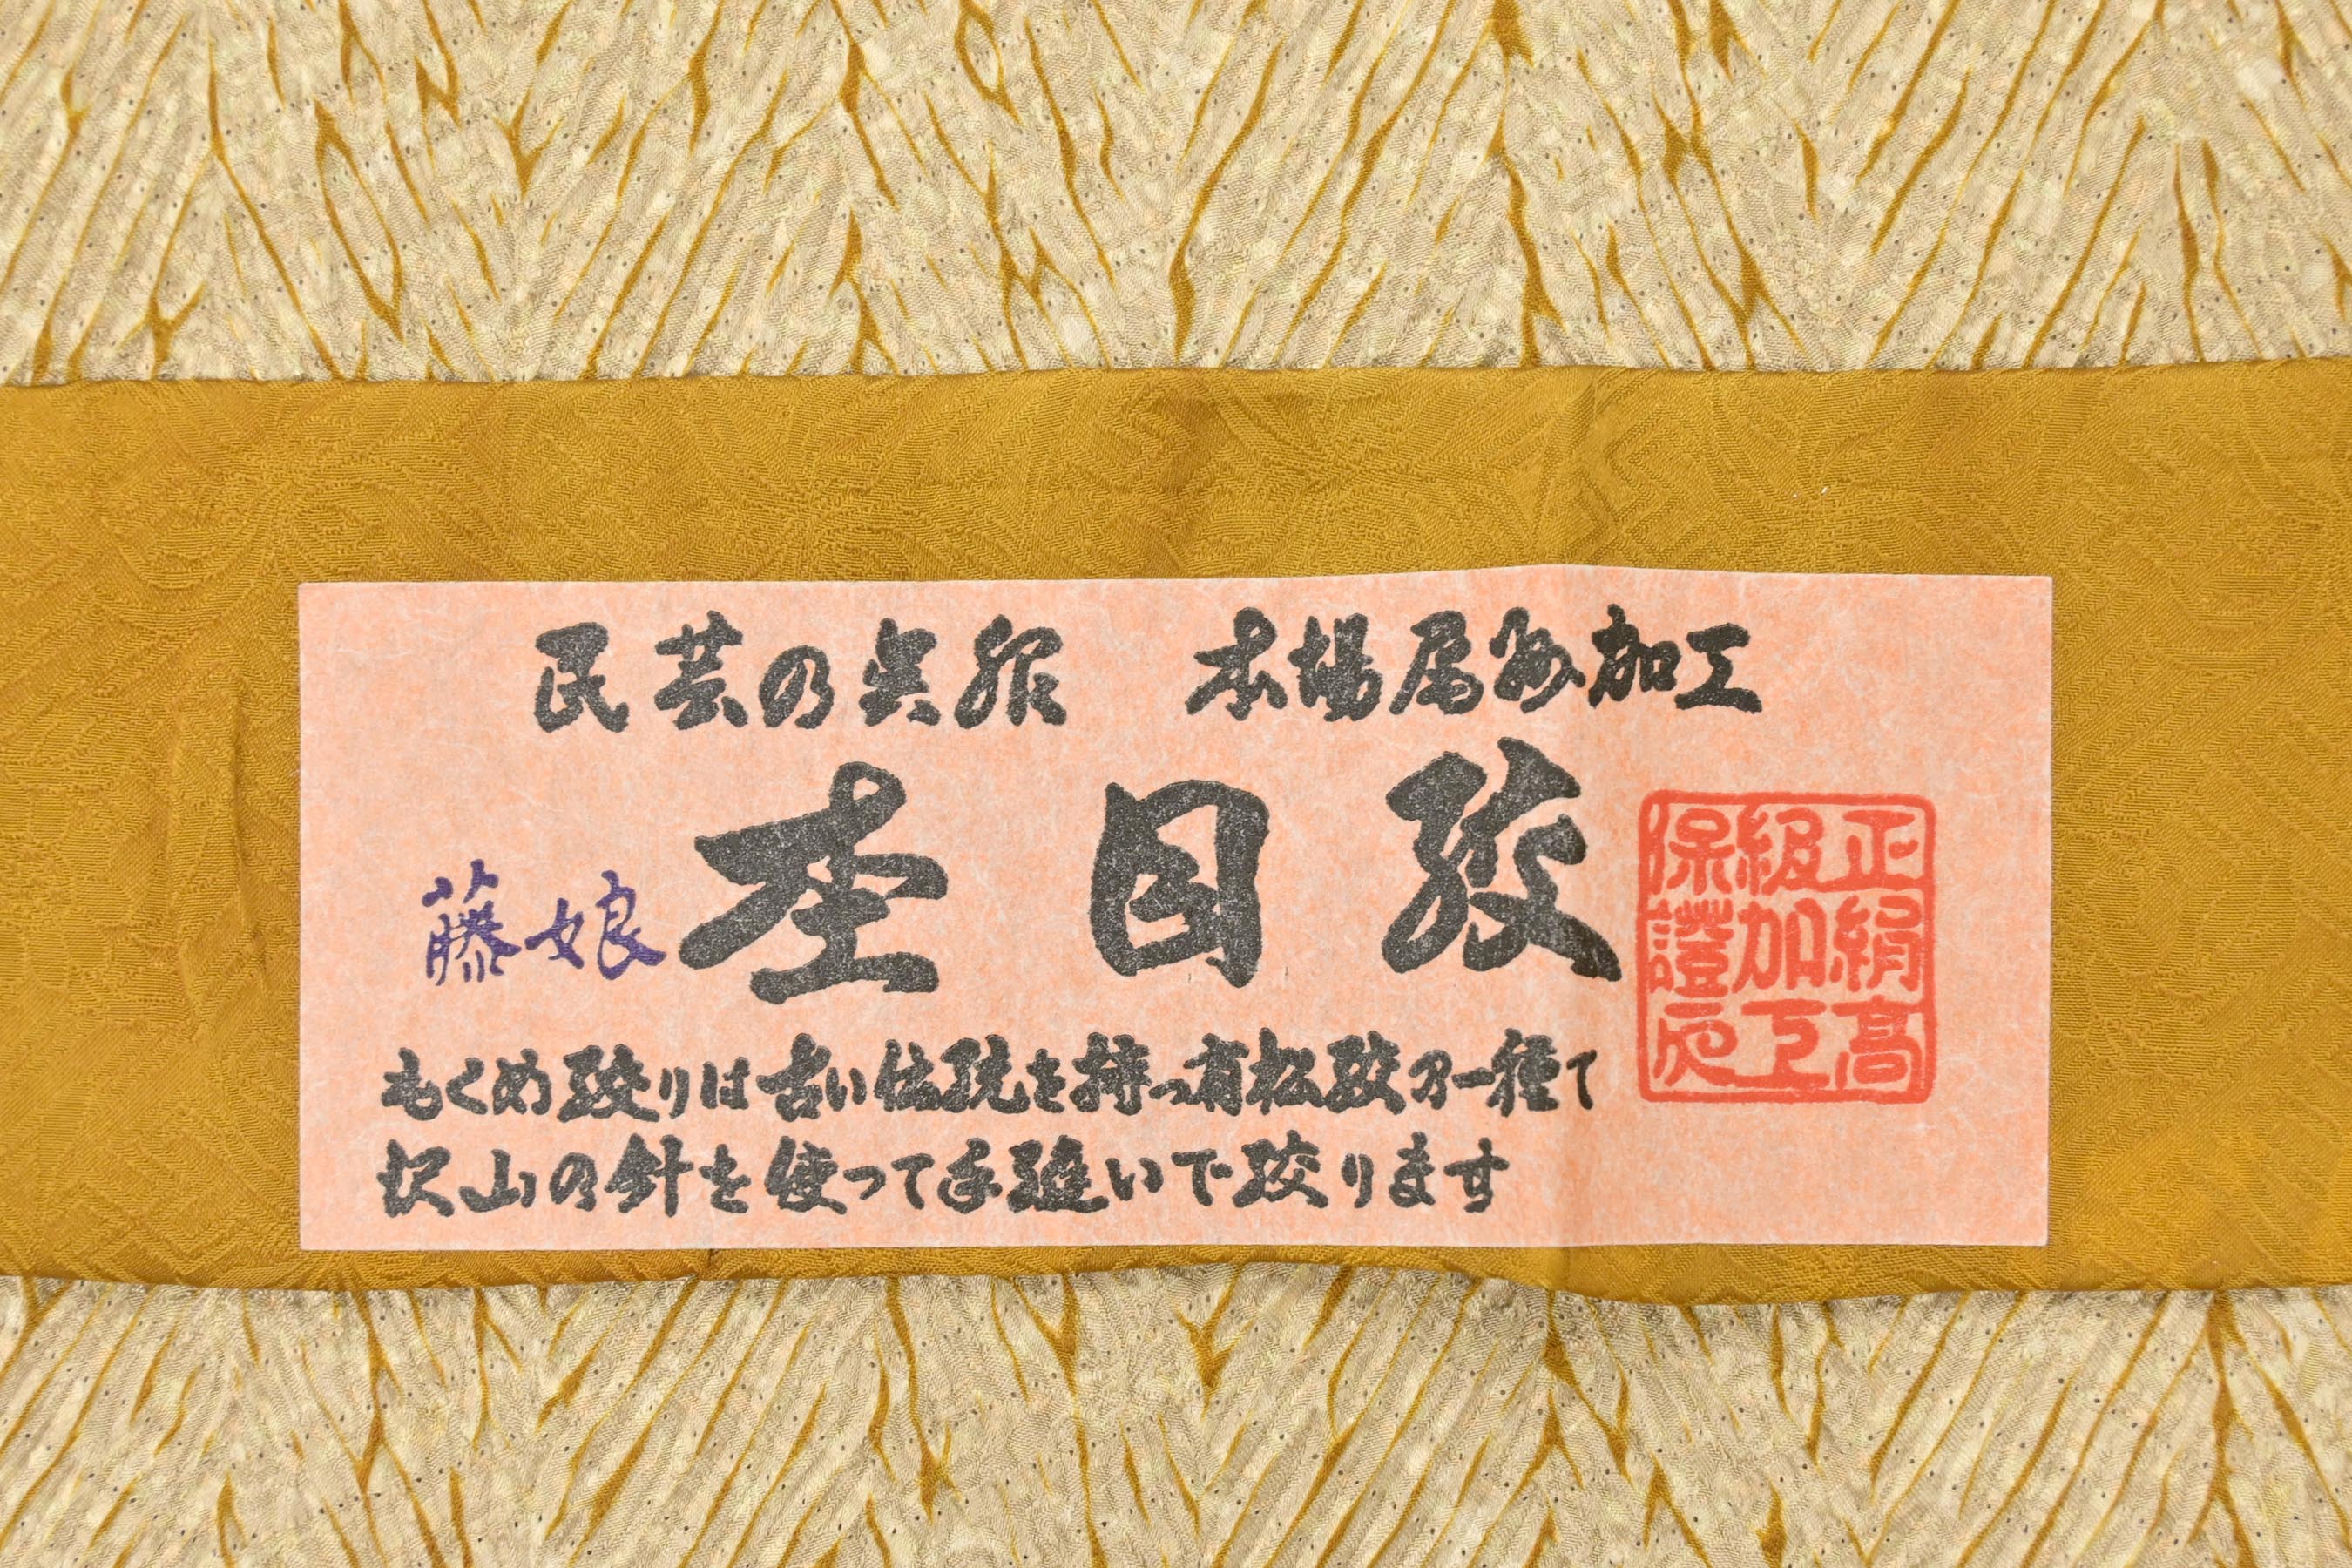 民芸の呉服　本場尾州加工
杢目絞
藤娘
もくめ絞りは古い伝統を持つ有松絞の一種で
沢山の針を使って手縫いで絞ります
正絹高
級加工
保證之